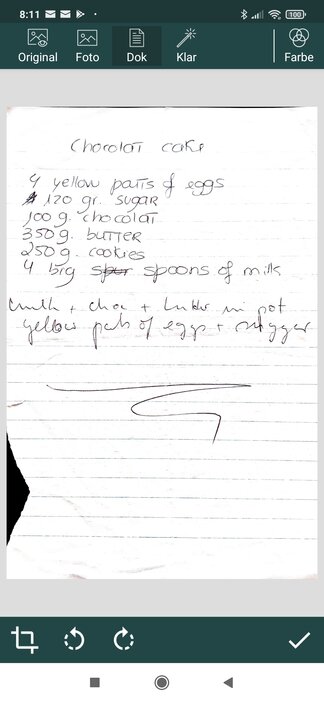 8:11
100
Original Foto Dok Klar Farbe
Chocolat cake
4 yellow parts of eggs
120 gr. sugar
100 g. chocolat
350 g. butter
250 g. cookies
4 big spoons of milk
milk + choc + butter in pot
yellow parts of eggs + sugger